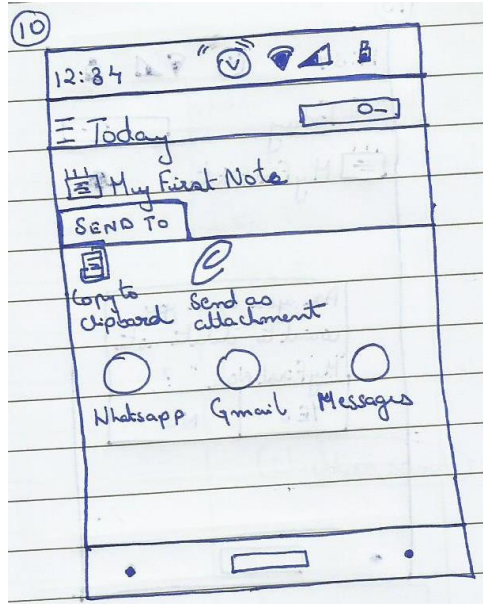 10
12:34
Today
My First Note
SEND TO
Copy to clipboard
Send as attachment
Whatsapp Gmail Messages